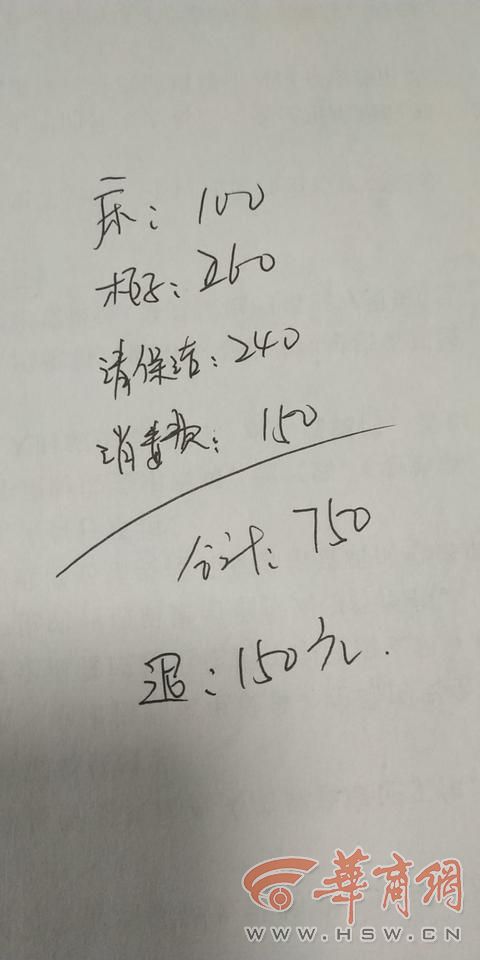 床：100
柜子：260
请保洁：240
消毒液：150
合计：750
退：150元.
華商網
WWW.HSW.CN